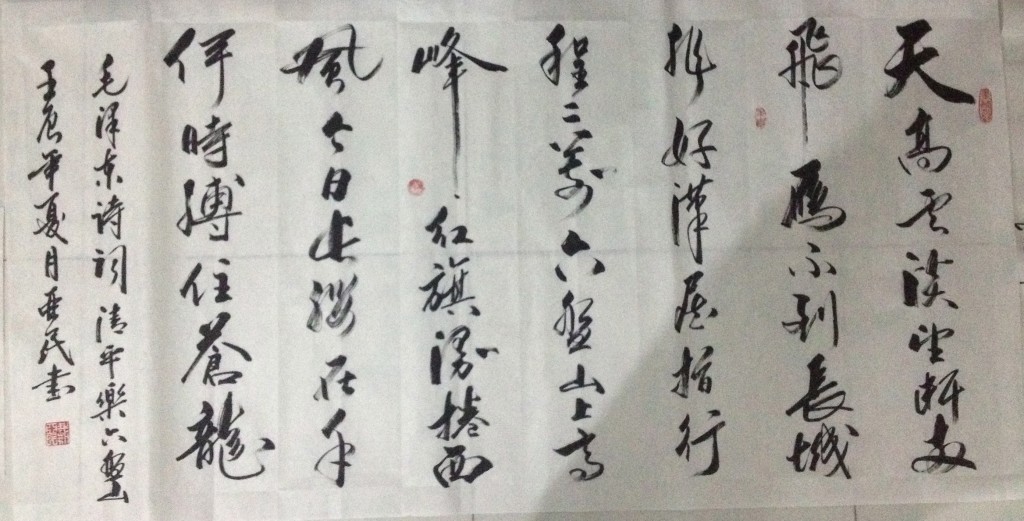 天高云淡望断南
飛雁不到長城
非好漢屈指行
程二萬六盤山上高
峰红旗漫捲西
風今日長缨在手
何時縛住蒼龍
毛泽东诗词清平樂六盤山
壬辰年夏月 民書